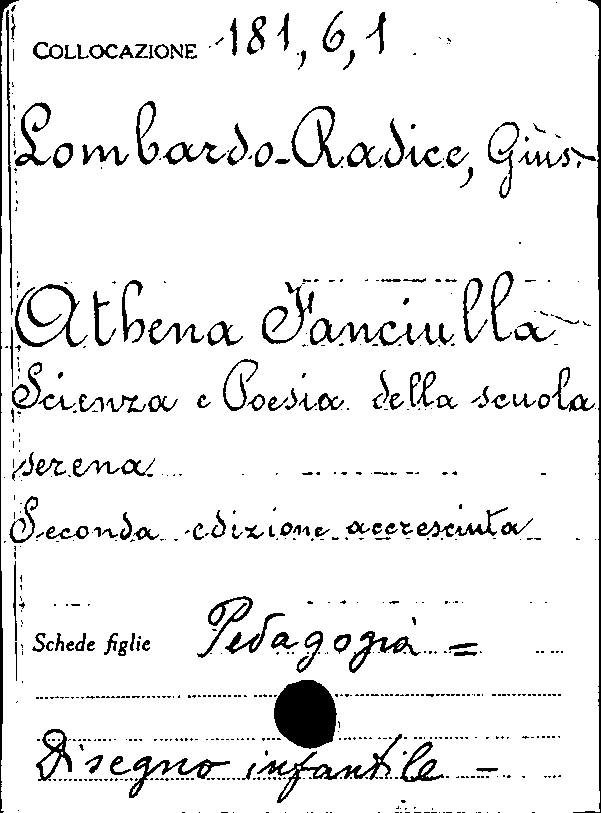 COLLOCAZIONE 181, 6, 1
Lombardo-Radice, Gius.
Athena Fanciulla
Scienza e Poesia della scuola
serena
Seconda edizione accresciuta
Schede figlie Pedagogia =
Disegno infantile -